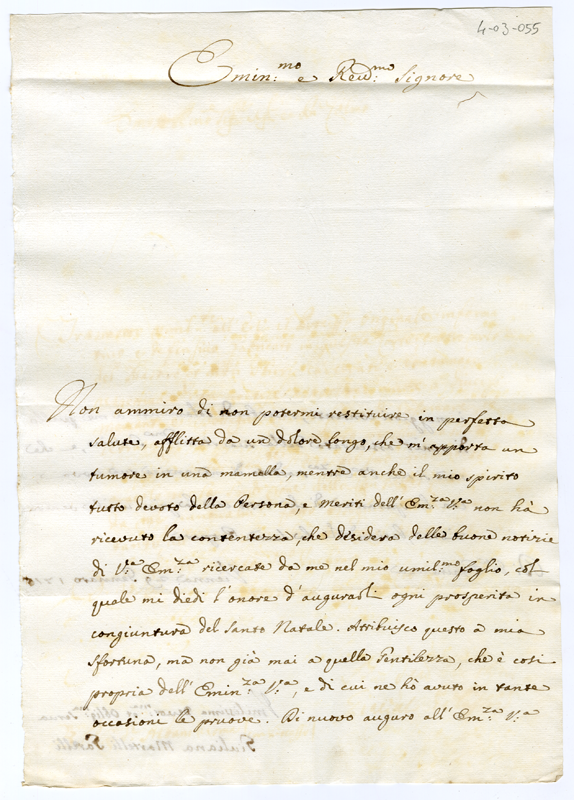 4-03-055
Emin:mo e Revd:mo Signore
Non ammiro di non potermi restituire in perfetta
salute, afflitta da un dolore longo, che m'apporta un
tumore in una mamella, mentre anche il mio spirito
tutto devoto della Persona, e meriti dell'Em:za V:a non hà
ricevuto la contentezza, che disidera delle buone notizie
di V:a Em:za ricercate da me nel mio umil:mo foglio, col
quale mi diedi l'onore d'augurarli ogni prosperità in
congiuntura del Santo Natale. Attribuisco questo a mia
sfortuna, ma non già mai a quella Gentilezza, che è così
propria dell'Emin:za V:a, e di cui ne hò avuto in tante
occasioni le pruove. Di nuovo auguro all'Em:za V:a